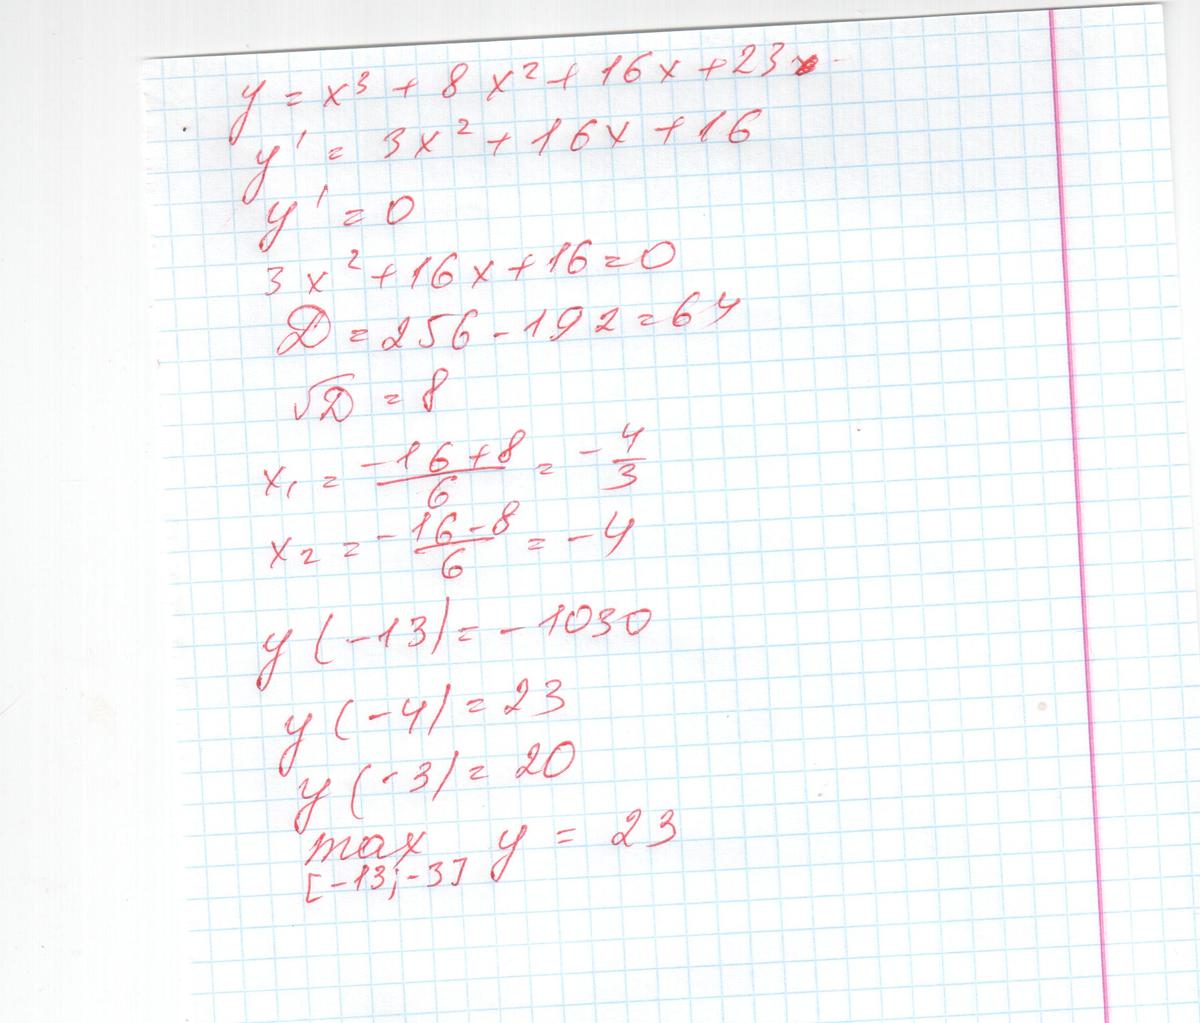 y = x³ + 8x² + 16x + 23
y' = 3x² + 16x + 16
y' = 0
3x² + 16x + 16 = 0
D = 256 - 192 = 64
√D = 8
x₁ = (-16+8)/6 = -4/3
x₂ = (-16-8)/6 = -4
y(-13) = -1030
y(-4) = 23
y(-3) = 20
max y = 23
[-13; -3]